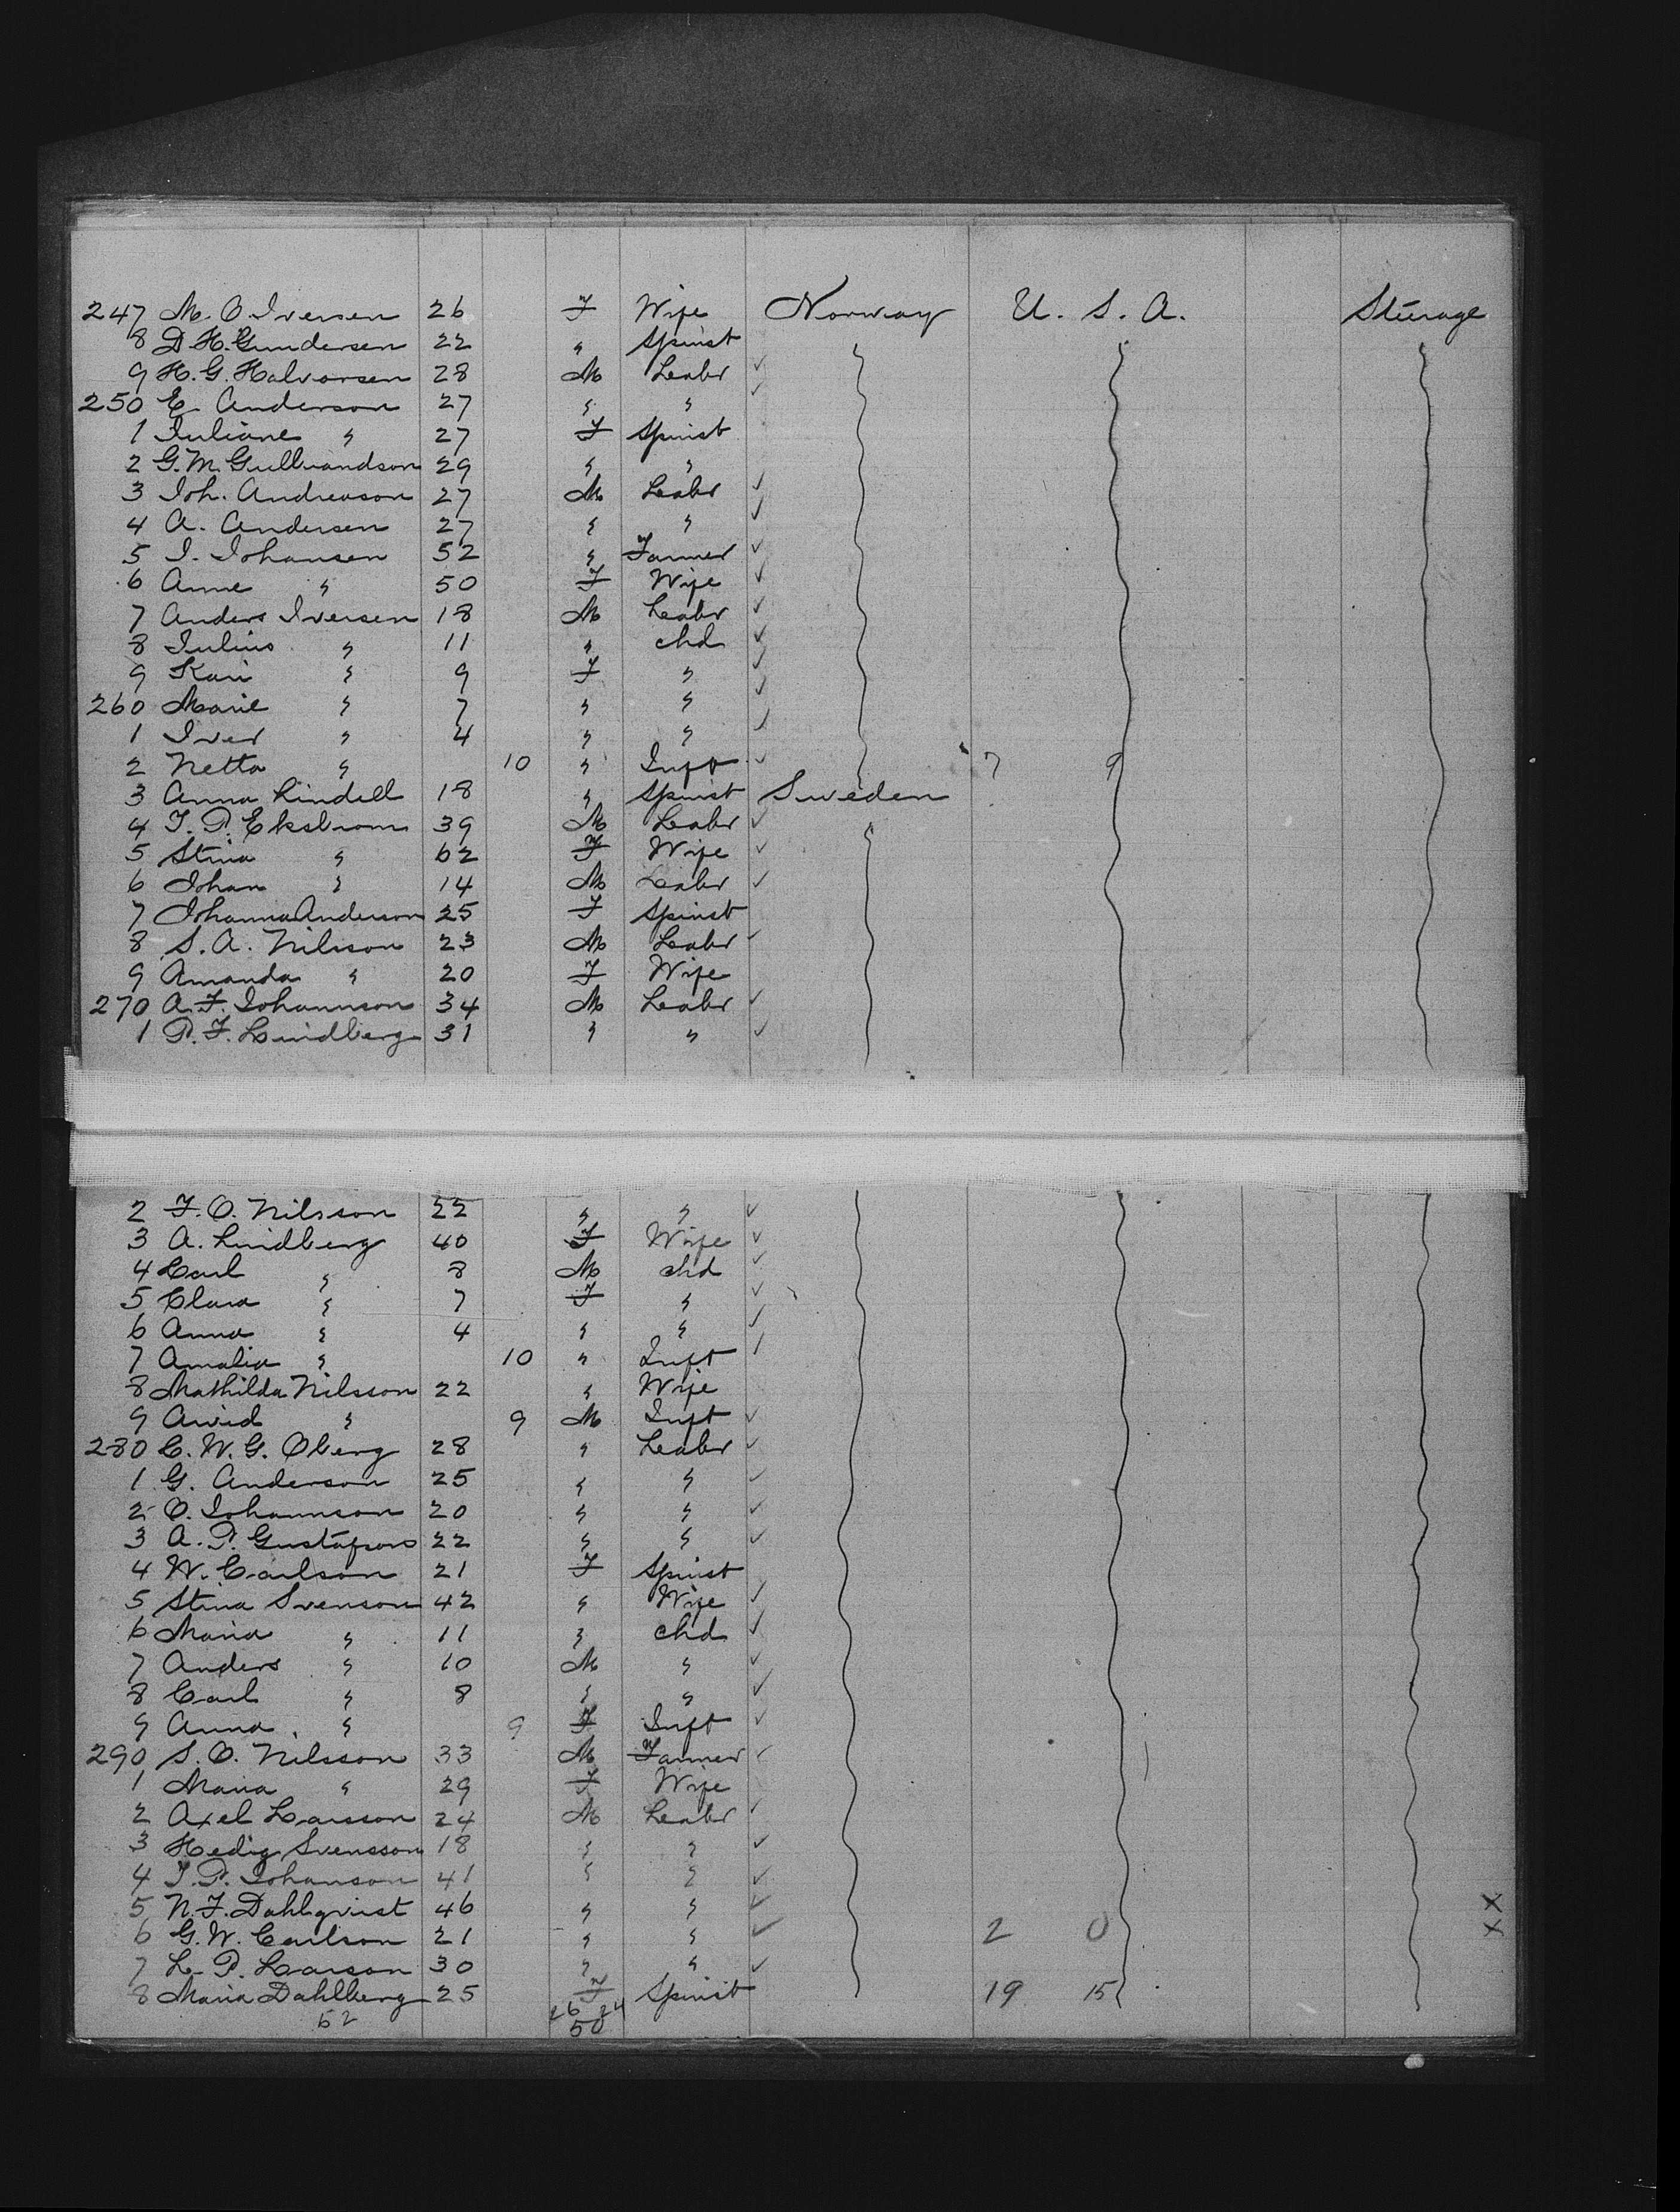 247 M. O. Iversen 26 F Wife Norway U. S. A. Steerage
8 D. H. Gundersen 22 " Spinst
9 H. G. Halvorsen 28 M Labr ✓
250 E. Anderson 27 " " ✓
1 Juliane " 27 F Spinst
2 G. M. Gulbrandson 29 " "
3 Joh. Andreason 27 M Labr ✓
4 A. Andersen 27 " " ✓
5 I. Johansen 52 " Farmer ✓
6 Anne " 50 F Wife ✓
7 Anders Iversen 18 M Labr ✓
8 Julius " 11 " chd ✓
9 Kari " 9 F " ✓
260 Marie " 7 " " ✓
1 Iver " 4 " " ✓
2 Netta " 10 " Inft ✓ 7 9
3 Anna Lindell 18 " Spinst Sweden
4 J. P. Ekstrom 39 M Labr ✓
5 Stina " 62 F Wife ✓
6 Johan " 14 M Labr ✓
7 Johanna Anderson 25 F Spinst
8 S. A. Nilsson 23 M Labr ✓
9 Amanda " 20 F Wife
270 A. F. Johannson 34 M Labr ✓
1 P. F. Lindberg 31 " " ✓
2 F. O. Nilsson 22 " " ✓
3 A. Lindberg 40 F Wife ✓
4 Carl " 8 M chd ✓
5 Clara " 7 F " ✓
6 Anna " 4 " " ✓
7 Amalia " 10 " Inft ✓
8 Mathilda Nilsson 22 " Wife
9 Arvid " 9 M Inft ✓
280 C. W. G. Oberg 28 " Labr ✓
1 G. Anderson 25 " " ✓
2 O. Johannson 20 " " ✓
3 A. P. Gustafson 22 " " ✓
4 W. Carlson 21 F Spinst
5 Stina Svenson 42 " Wife ✓
6 Maria " 11 " chd ✓
7 Anders " 10 M " ✓
8 Carl " 8 " " ✓
9 Anna " 9 F Inft ✓
290 S. O. Nilsson 33 M Farmer ✓
1 Maria " 29 F Wife
2 Axel Larsson 24 M Labr ✓
3 Hedig Svensson 18 " " ✓
4 J. P. Johanson 41 " " ✓
5 N. F. Dahlqvist 46 " " ✓ X
6 G. W. Carlson 21 " " ✓ 2 0 X
7 L. P. Larson 30 " " ✓
8 Maria Dahlberg 25 F Spinst 19 15
52 26 24
50